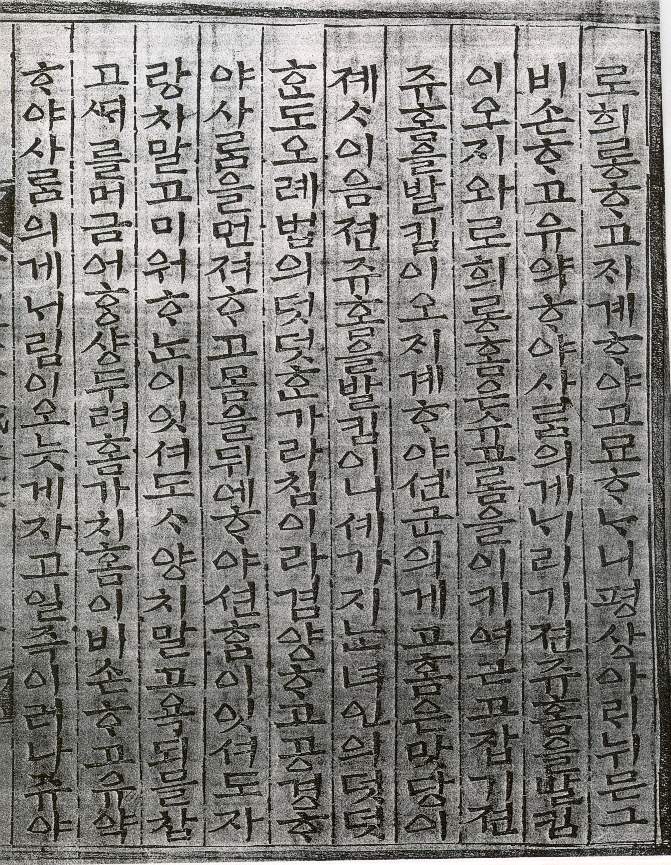 로희롱ᄒᆞ고지계ᄒᆞ야고묘ᄒᆞᄂᆞ니평상아ᄅᆡ뉘믄그
비손ᄒᆞ고유약ᄒᆞ야사ᄅᆞᆷ의게ᄂᆞ리기젼쥬홈을발킴
이오지와로희롱홈은슈고롬을이키여근고잡기젼
쥬홈을발킴이오지계ᄒᆞ야션군의게고홈은맛당이
졔ᄉᆞ이음젼쥬홈을발킴이니세가지ᄂᆞᆫ녀인의덧덧
ᄒᆞᆫ도오례법의덧덧ᄒᆞᆫ가라침이라겸양ᄒᆞ고공경ᄒᆞ
야사ᄅᆞᆷ을먼져ᄒᆞ고몸을뒤에ᄒᆞ야션홈이잇셔도자
랑치말고미워ᄒᆞᄂᆞ이잇셔도ᄉᆞ양치말고욕되믈참
고ᄯᅥ를머금어ᄒᆞᆼ샹두려홈가치홈이비손ᄒᆞ고유약
ᄒᆞ야사ᄅᆞᆷ의게ᄂᆞ림이오늣게자고일즉이러나쥬야